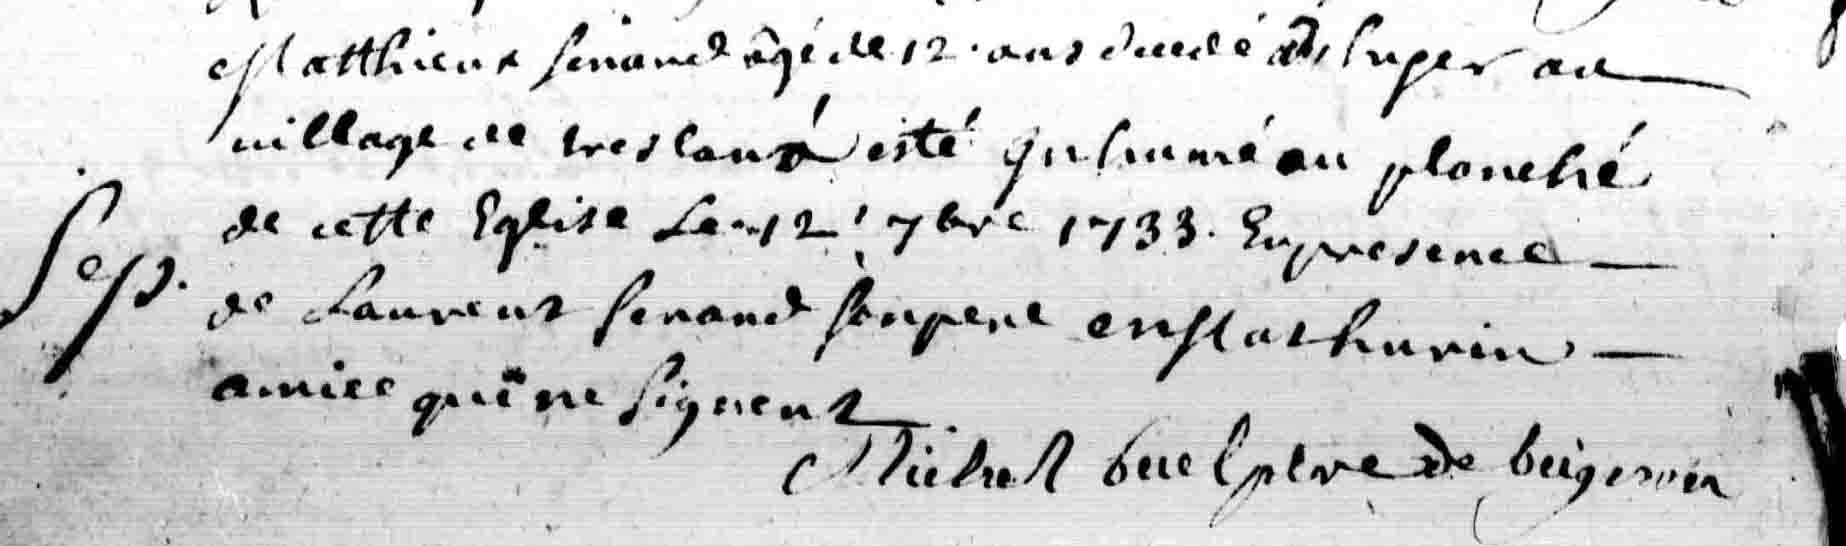 Matthieux senand âgé de 12. ans ducdé au
village de treslan a esté Inhumé au planché
de cette Eglise Le 12. 7bre 1733. En presence
Sep. de Laurent senand son pere et Mathurin
amice qui ne signent
Michel buel ptre de